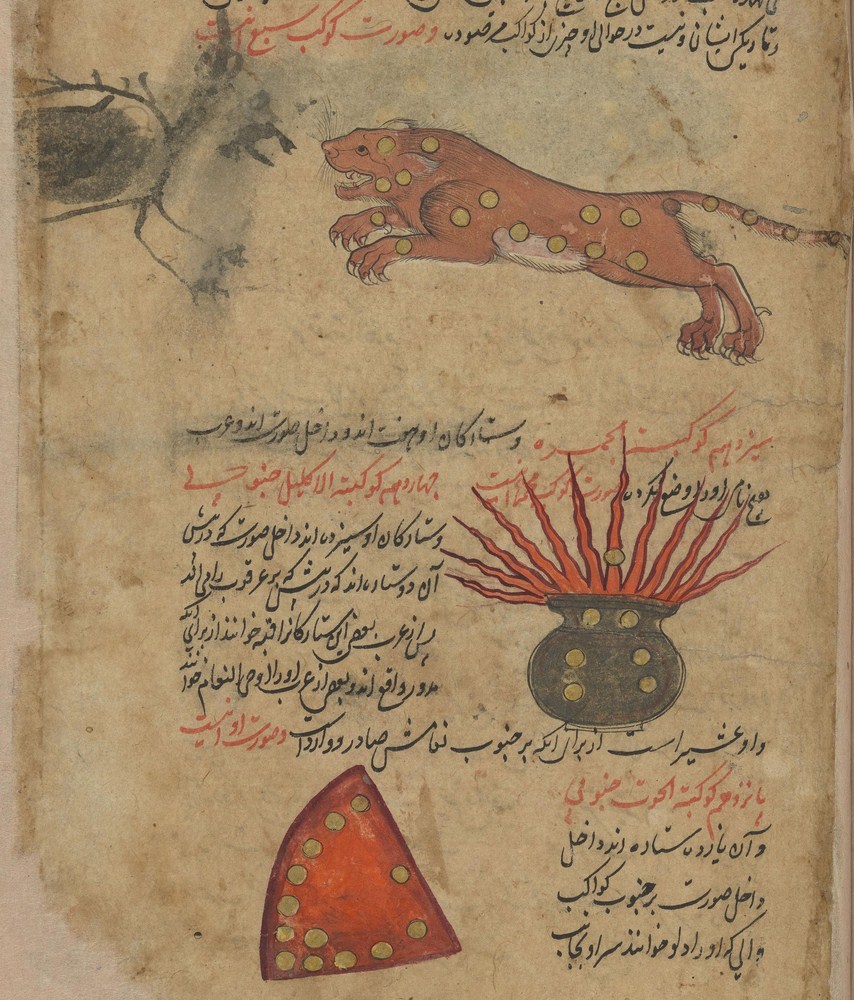 وتا دیکر ایشان ونیست در حوالی او چیزی از کواکب مرصوده وصورت کوکب سبع اینست
سیزدهم کوکبة المجمره وستارکان او هفت اند وداخل صورت اند وعرب
هیچ نام او را وضع نکرده وصورت کوکب مجمره اینست
چهاردهم کوکبة الاکلیل جنوبی
وستارکان او سیزده اند داخل صورت که در پیش
آن دو ستاره اند که در پیش که بر عرقوب رامی اند
پس از عرب بعضی این ستارکانرا قبه خوانند از برای آنکه
مدور واقع اند وبعضی از عرب او را ادحی النعام خوانند
از برای آنکه بر جنوب نعامش صادر ووارد است وصورت او اینست
پانزدهم کوکبة الحوت جنوبی
و آن یازده ستاره اند داخل
داخل صورت بر جنوب کواکب
که او را دلو خوانند سر او بجانب